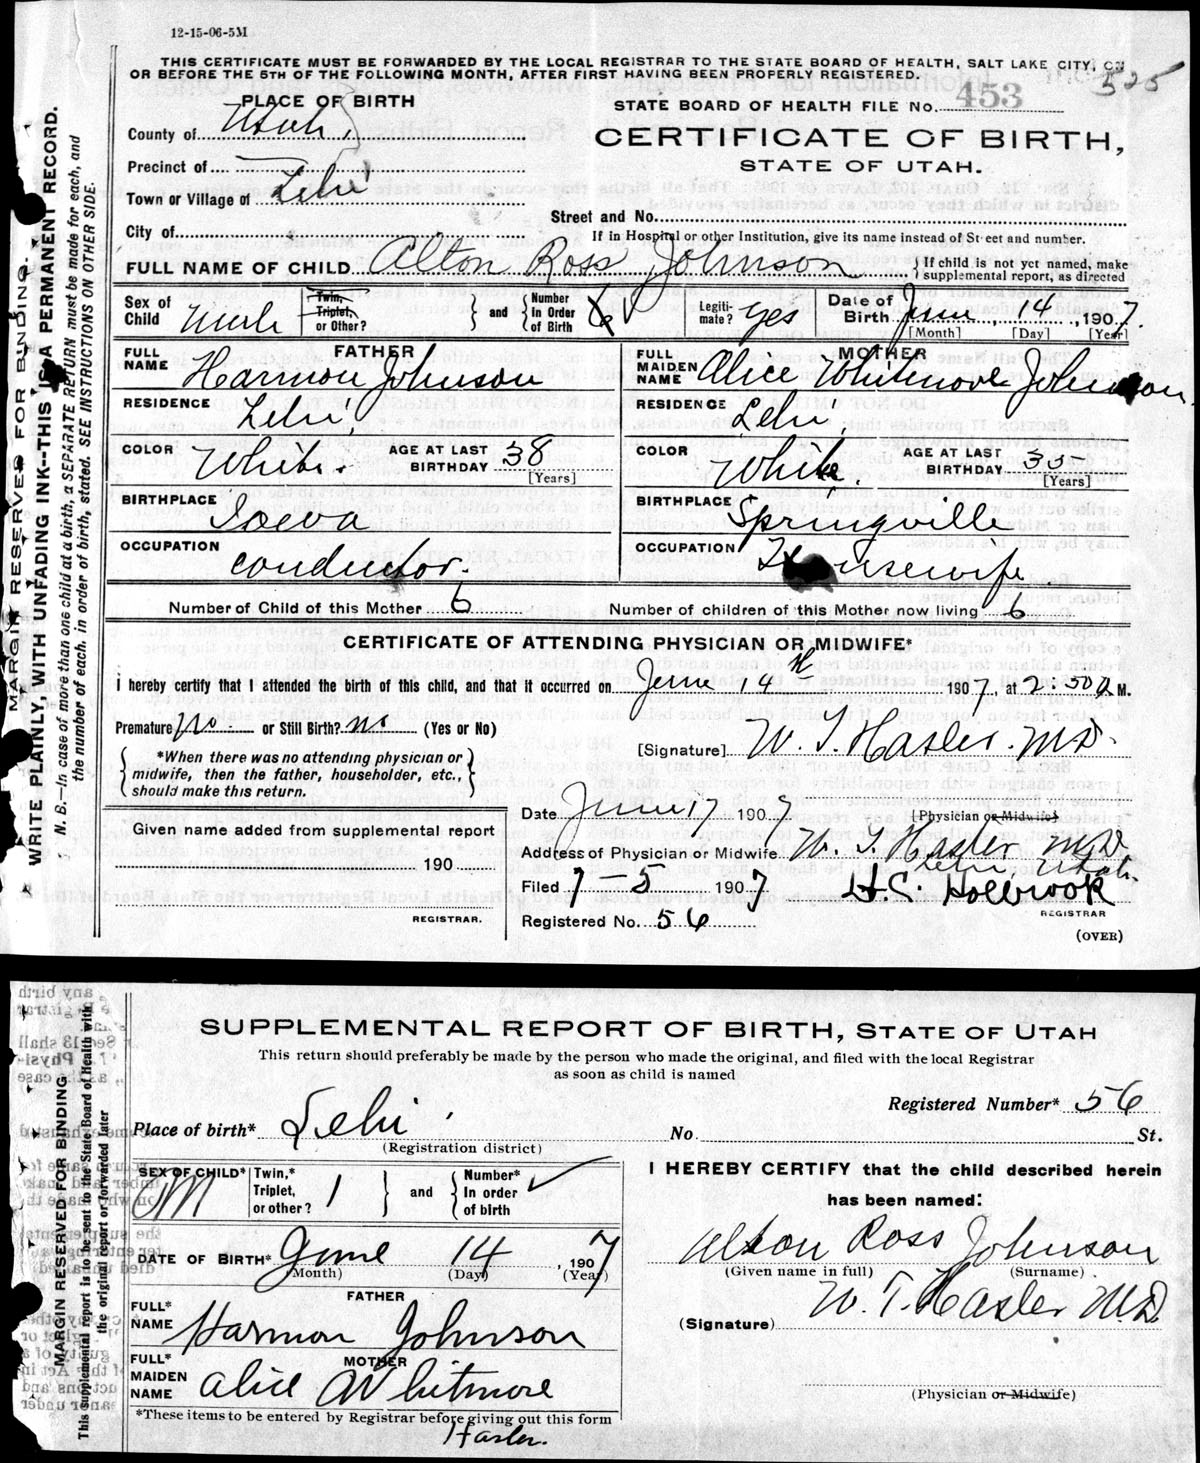 12-15-06-5M
THIS CERTIFICATE MUST BE FORWARDED BY THE LOCAL REGISTRAR TO THE STATE BOARD OF HEALTH, SALT LAKE CITY, ON
OR BEFORE THE 5TH OF THE FOLLOWING MONTH, AFTER FIRST HAVING BEEN PROPERLY REGISTERED.
525
PLACE OF BIRTH
STATE BOARD OF HEALTH FILE No. 453
County of Utah
CERTIFICATE OF BIRTH,
Precinct of
STATE OF UTAH.
Town or Village of Lehi
Street and No.
City of
If in Hospital or other Institution, give its name instead of Street and number.
FULL NAME OF CHILD Alton Ross Johnson { If child is not yet named, make supplemental report, as directed
Sex of Child Male Twin, Triplet, or Other? } and { Number in Order of Birth 6 Legitimate? yes Date of Birth June 14, 1907.
[Month] [Day] [Year]
FATHER MOTHER
FULL NAME Harmon Johnson FULL MAIDEN NAME Alice Whitmore Johnson.
RESIDENCE Lehi RESIDENCE Lehi
COLOR White. AGE AT LAST BIRTHDAY 38 [Years] COLOR White. AGE AT LAST BIRTHDAY 35 [Years]
BIRTHPLACE Iowa BIRTHPLACE Springville
OCCUPATION conductor. OCCUPATION Housewife.
Number of Child of this Mother 6 Number of children of this Mother now living 6
CERTIFICATE OF ATTENDING PHYSICIAN OR MIDWIFE*
I hereby certify that I attended the birth of this child, and that it occurred on June 14th 1907, at 2:50 a M.
Premature no. or Still Birth? no (Yes or No)
[Signature] W. T. Hasler. M.D.
{ *When there was no attending physician or midwife, then the father, householder, etc., should make this return. }
Date June 17 1907
[Physician or Midwife]
Given name added from supplemental report
Address of Physician or Midwife W. T. Hasler M.D
Lehi Utah.
190
Filed 7-5 1907 H.C. Holbrook
REGISTRAR.
REGISTRAR
Registered No. 56
(OVER)
MARGIN RESERVED FOR BINDING.
WRITE PLAINLY, WITH UNFADING INK--THIS IS A PERMANENT RECORD.
N. B.—In case of more than one child at a birth, a SEPARATE RETURN must be made for each, and
the number of each, in order of birth, stated. SEE INSTRUCTIONS ON OTHER SIDE.
SUPPLEMENTAL REPORT OF BIRTH, STATE OF UTAH
This return should preferably be made by the person who made the original, and filed with the local Registrar
as soon as child is named
Registered Number* 56
Place of birth* Lehi No. St.
(Registration district)
SEX OF CHILD* M Twin,* Triplet, or other? 1 } and { Number* In order of birth
I HEREBY CERTIFY that the child described herein
has been named:
Alton Ross Johnson
DATE OF BIRTH* June 14, 1907
(Month) (Day) (Year)
(Given name in full) (Surname)
FATHER
FULL* NAME Harmon Johnson
W. T. Hasler M.D.
(Signature)
MOTHER
FULL* MAIDEN NAME Alice Whitmore
(Physician or Midwife)
*These items to be entered by Registrar before giving out this form
Hasler.
MARGIN RESERVED FOR BINDING
This Supplemental report is to be sent to the State Board of Health with
the original report or forwarded later